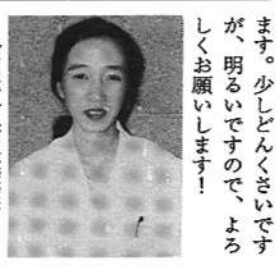 ます。少しどんくさいです
が、明るいですので、よろ
しくお願いします！